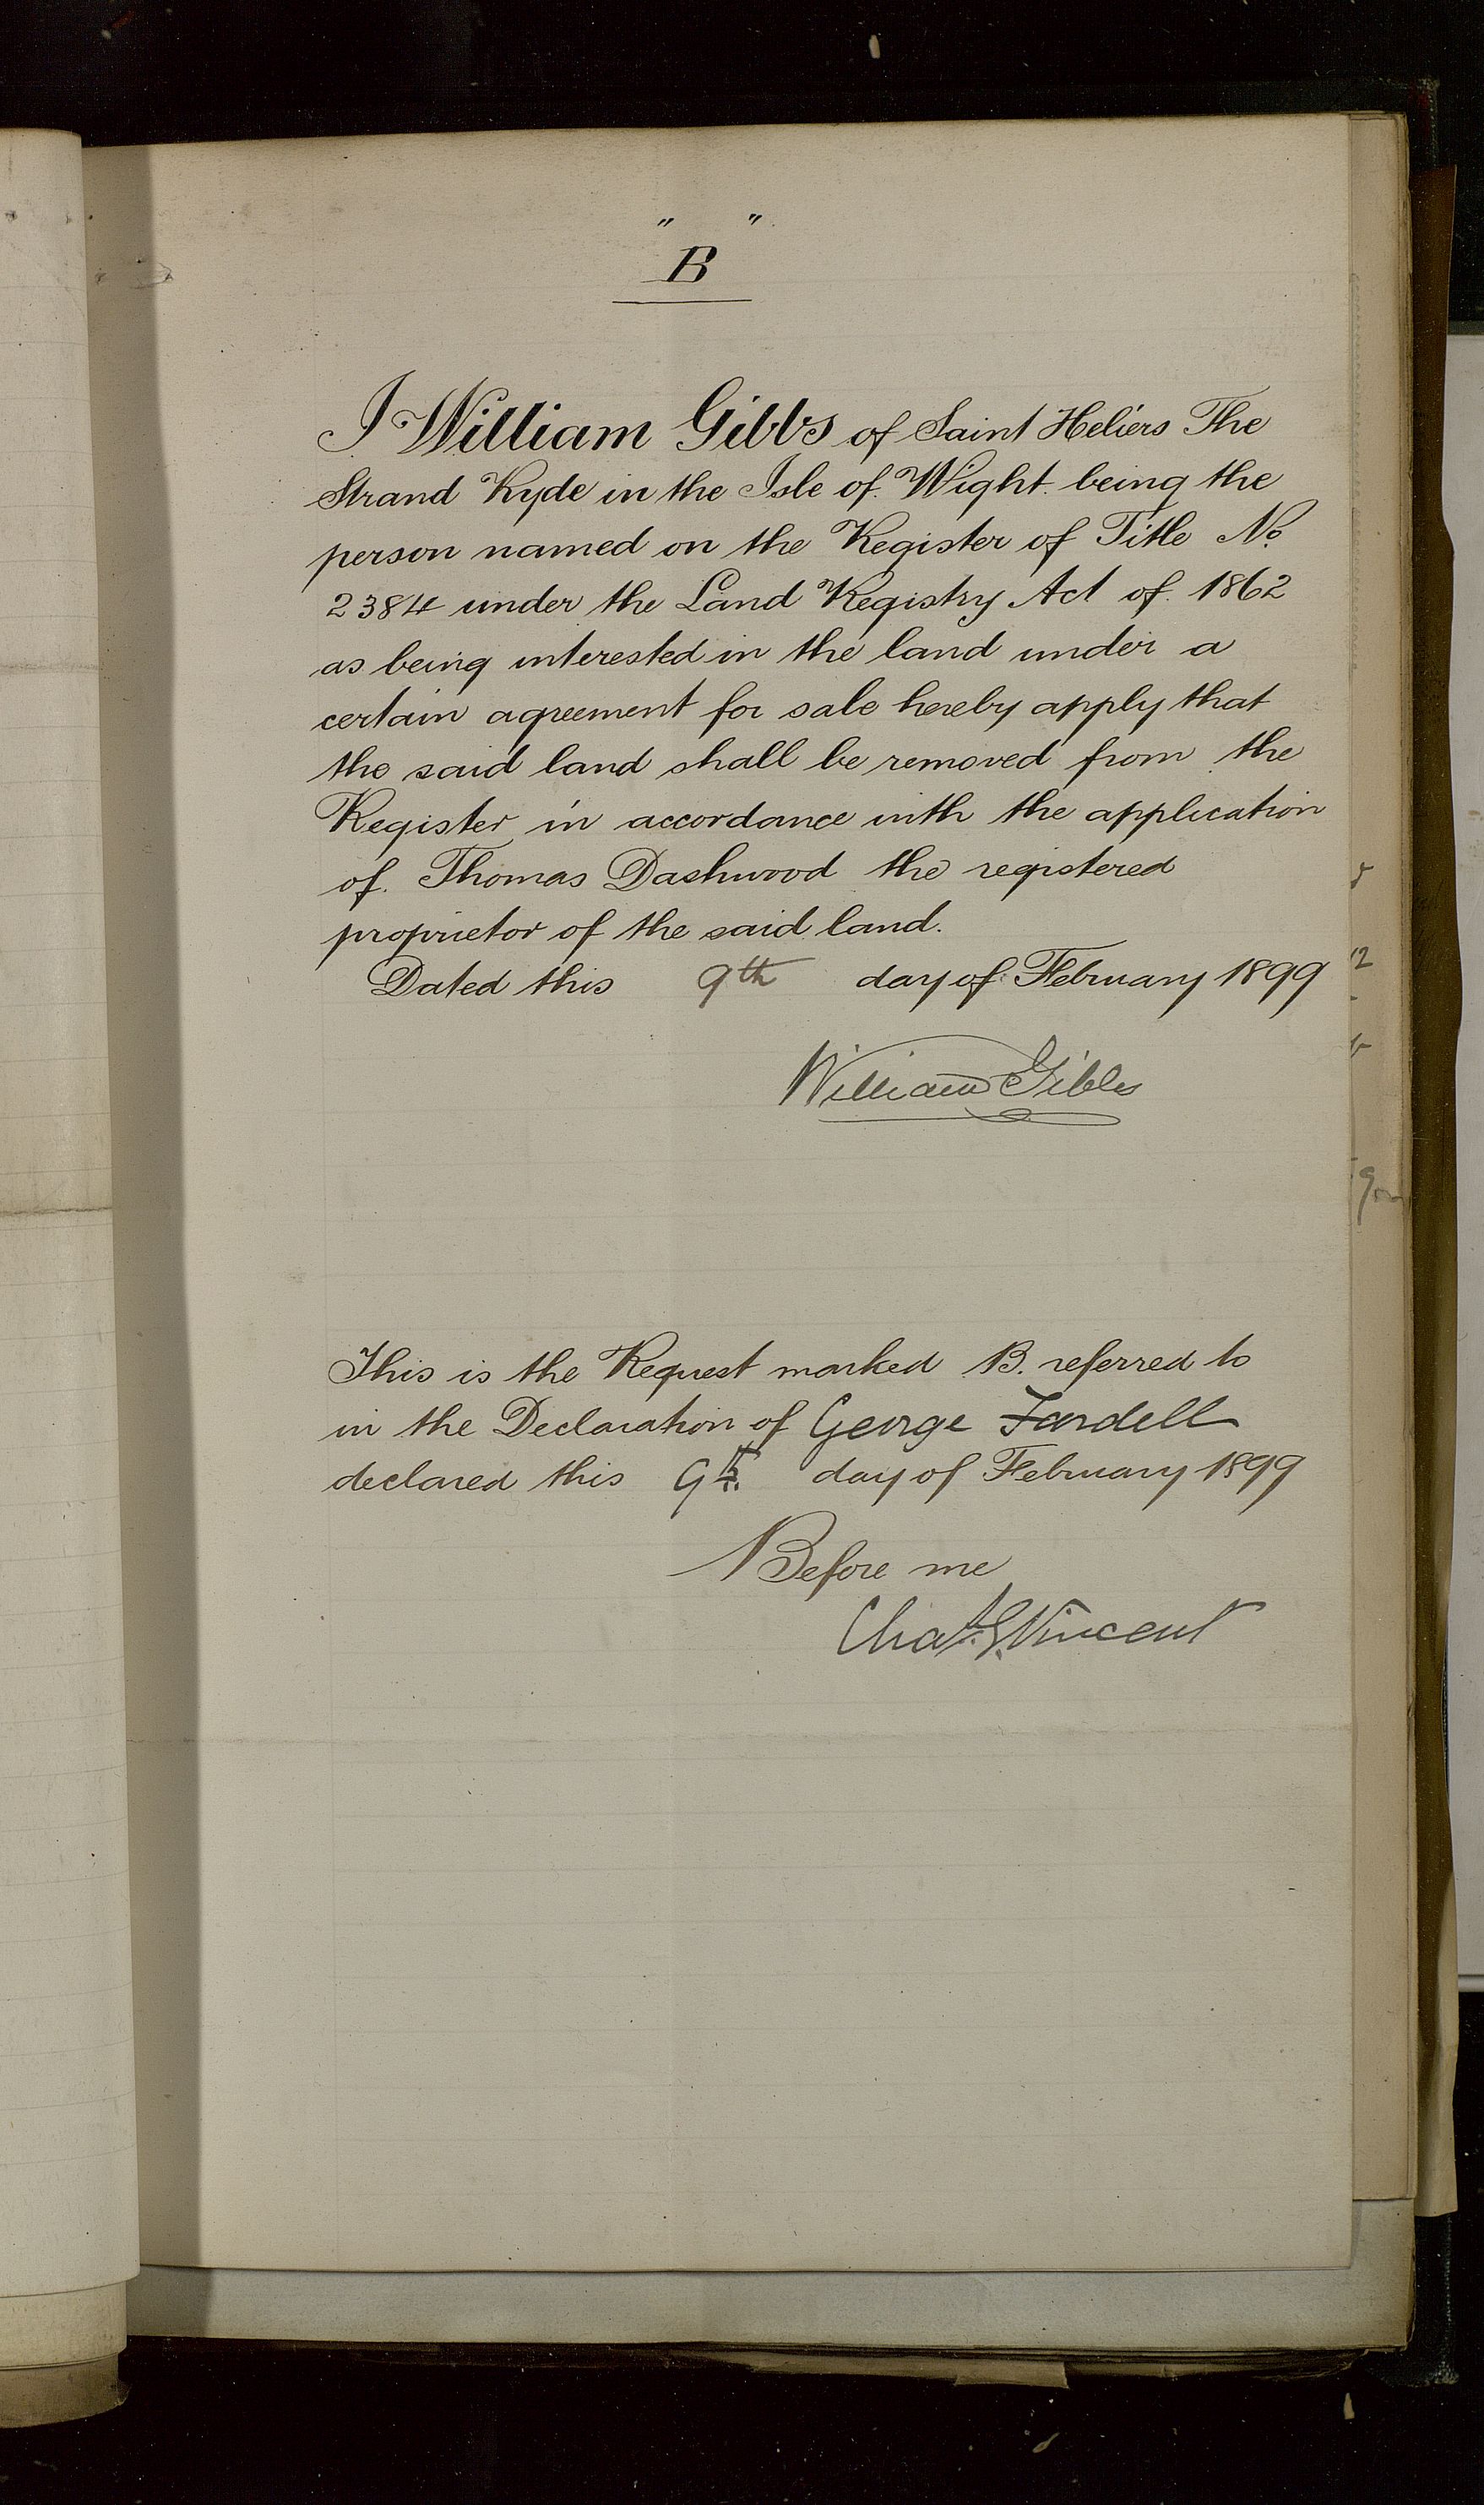 " "
B
I William Gibbs of Saint Heliers The
Strand Ryde in the Isle of Wight being the
person named on the Register of Title No.
2384 under the Land Registry Act of 1862
as being interested in the land under a
certain agreement for sale hereby apply that
the said land shall be removed from the
Register in accordance with the application
of Thomas Dashwood the registered
proprietor of the said land.
Dated this 9th day of February 1899
William Gibbs
This is the Request marked B. referred to
in the Declaration of George Fardell
declared this 9th. day of February 1899
Before me
Chas. G. Vincent